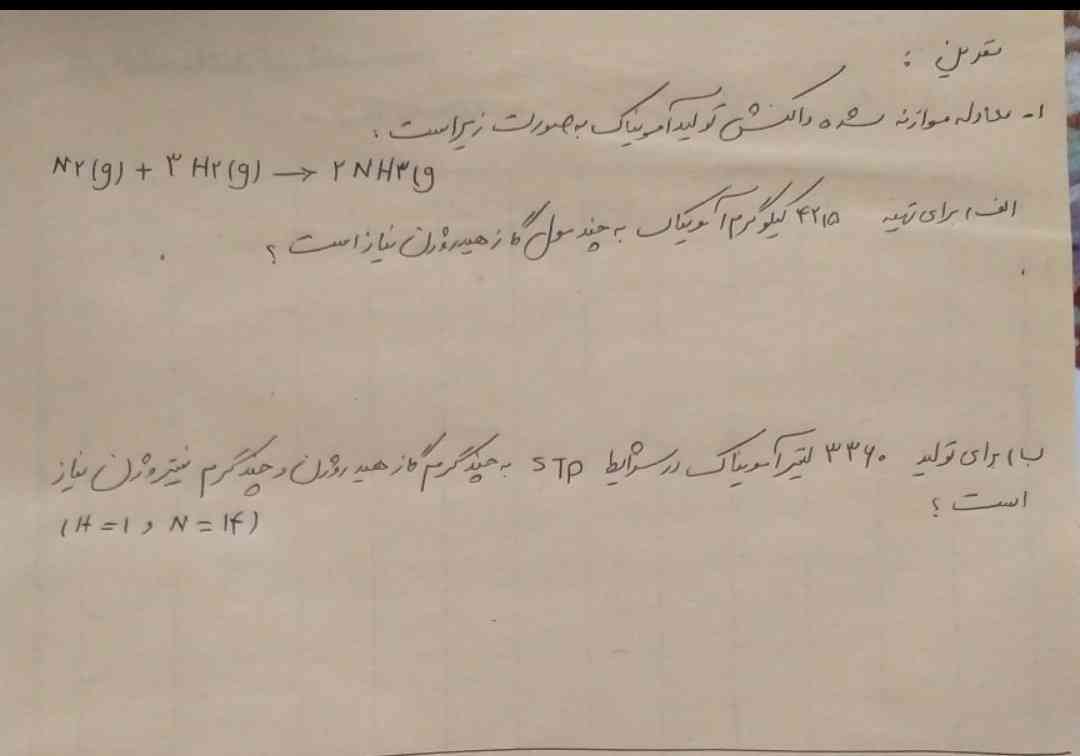 تمرین :
۱- معادله موازنه شده واکنش تولید آمونیاک به صورت زیر است :
N۲(g) + ۳ H۲(g) → ۲ NH۳(g
الف) برای تهیه ۴۲٫۵ کیلوگرم آمونیاک به چند مول گاز هیدروژن نیاز است ؟
ب) برای تولید ۳۳۶۰ لیتر آمونیاک در شرایط STP به چند گرم گاز هیدروژن و چند گرم نیتروژن نیاز
است ؟
(H = ۱ و N = ۱۴)